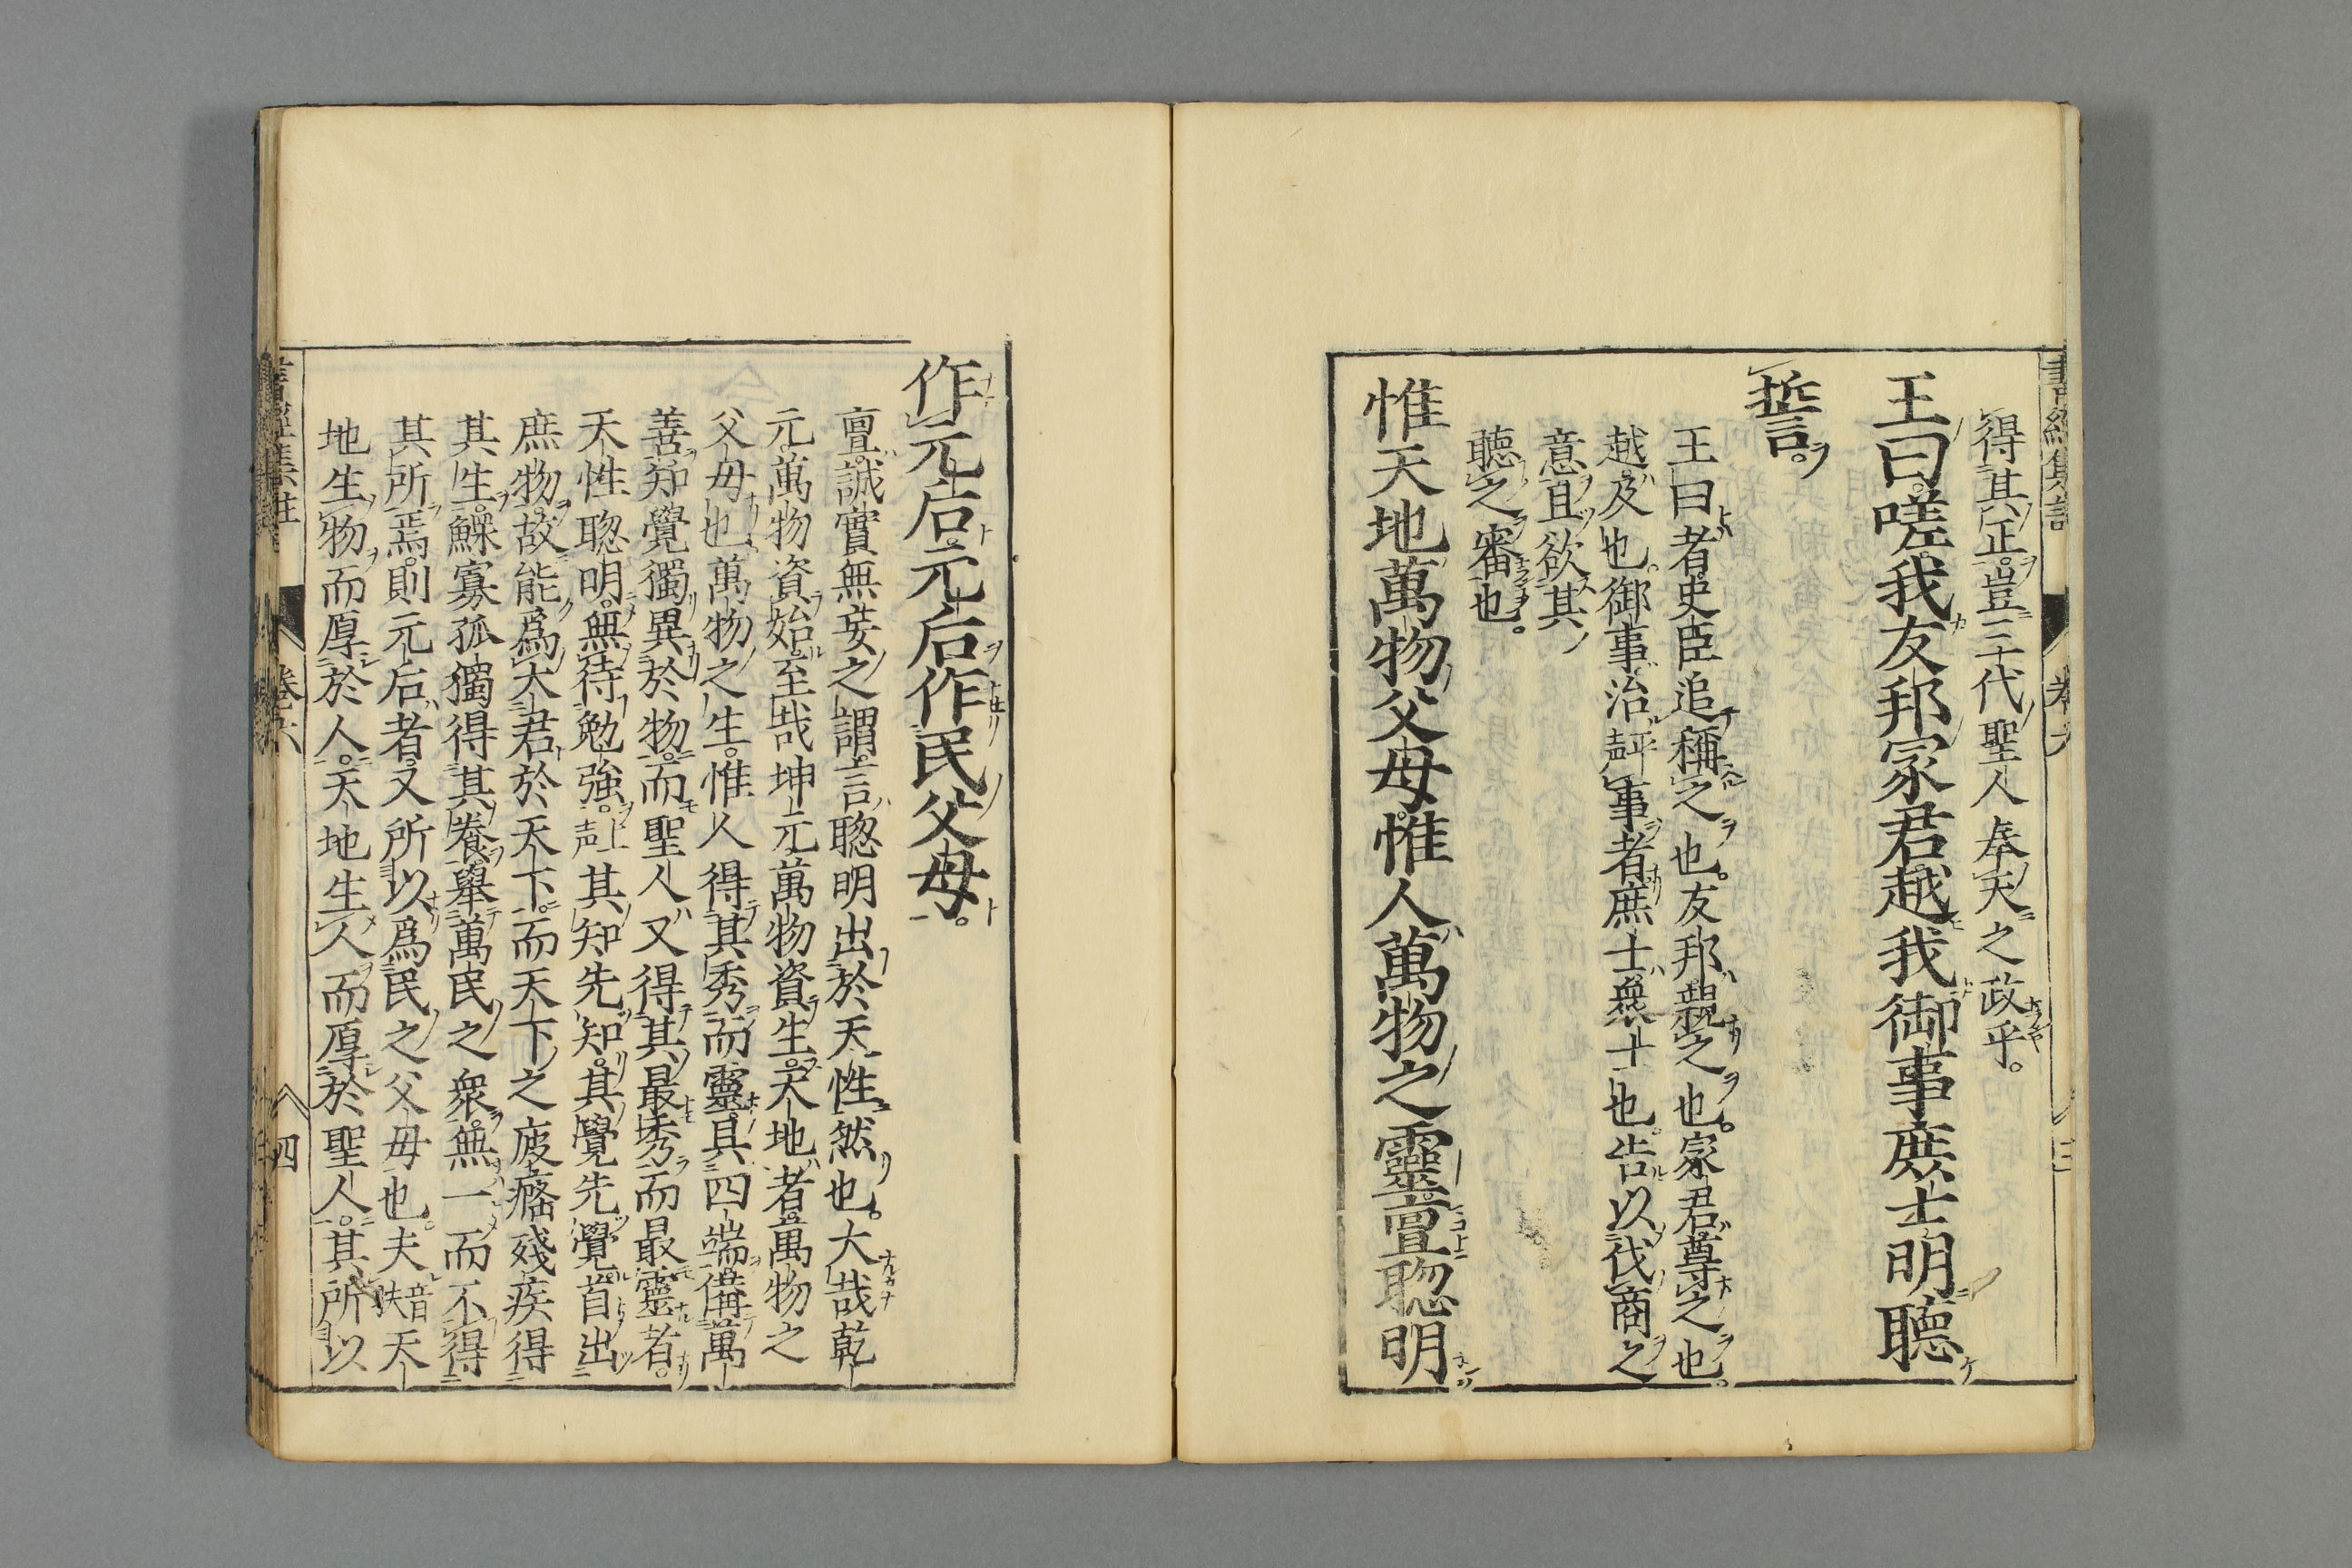 得其正豈三代聖人奉天之政乎。
王曰嗟我友邦冡君越我御事庶士明聽
誓言。
王曰者史臣追稱之也。友邦親之也。冡君尊之也。
越及也。御事治平聲事者庶士衆士也。告以伐商之
意且欲其
聽之審也。
惟天地萬物父母惟人萬物之靈亶聦明
作元后元后作民父母。
亶誠實無妄之謂言聦明出於天性然也。大哉乾
元萬物資始至哉坤元萬物資生天地者萬物之
父母也萬物之生。惟人得其秀而靈具四端備萬
善知覺獨異於物而聖人又得其最秀而最靈者。
天性聦明。無待勉強。上声其知先知。其覺先覺首出
庶物故能爲大君於天下。而天下之疲癃殘疾得
其生。鰥寡孤獨得其養舉萬民之衆無一而不得
其所焉則元后者又所以爲民之父母也。夫音扶天
地生物而厚於人。天地生人而厚於聖人。其所以
書經集註 卷六 四